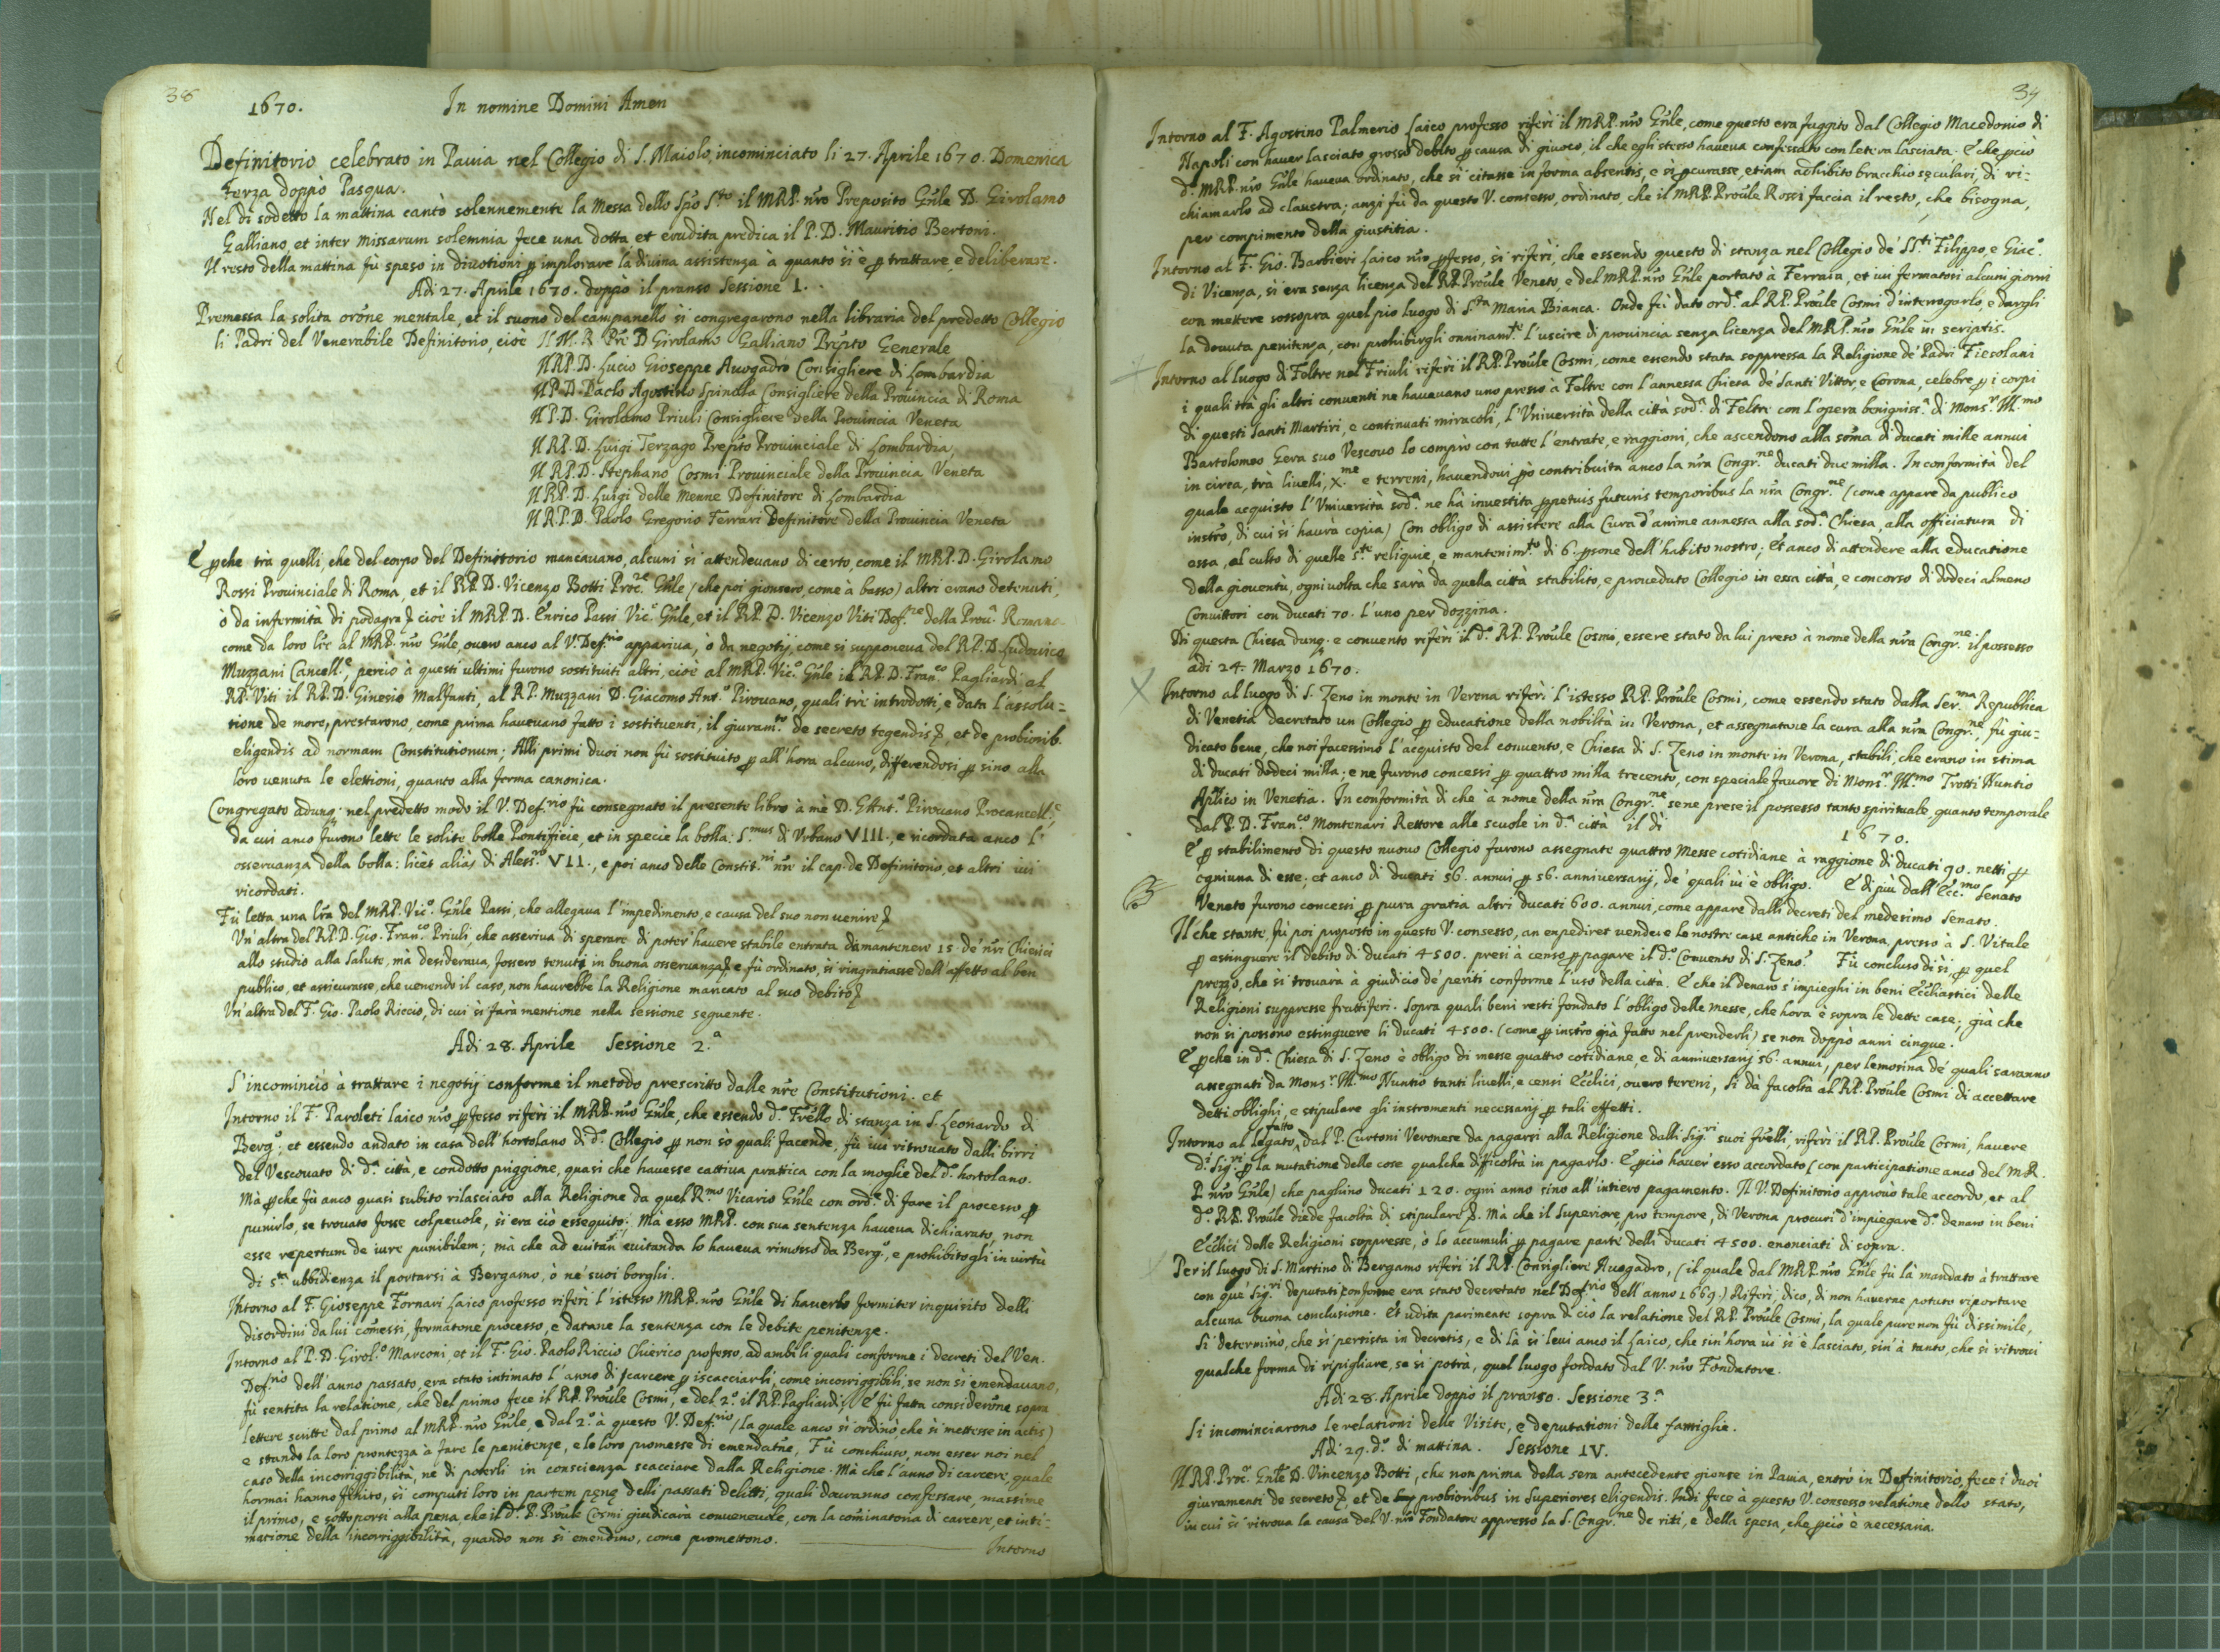 38
1670. In nomine Domini Amen
Definitorio celebrato in Pauia nel Collegio di S. Maiolo, incominciato li 27. Aprile 1670. Domenica
Terza doppò Pasqua.
Nel dì sodetto la mattina cantò solennemente la Messa dello Spo Sto il MRP. nro Preposito Gnle D. Girolamo
Galliano, et inter Missarum solemnia fece una dotta et erudita predica il P. D. Mauritio Bertoni.
Il resto della mattina fù speso in diuotioni p implorare la diuina assistenza a quanto si è p trattare, e deliberare.
Adi 27. Aprile 1670. doppò il pranso Sessione 1.
Premessa la solita orõne mentale, et il suono del campanello si congregarono nella libraria del predetto Collegio
li Padri del Venerabile Definitorio, cioè Il M. R. Pre D Girolamo Galliano Preptto Generale
Il RP. D. Lucio Gioseppe Auogadro Consigliere di Lombardia
Il P. D. Paolo Agostino Spinola Consigliere della Prouincia di Roma
Il P. D. Girolamo Priuli Consigliere della Prouincia Veneta
Il RP. D. Luigi Terzago Prepto Prouinciale di Lombardia
Il RP. D. Stephano Cosmi Prouinciale della Prouincia Veneta
Il RP. D. Luigi delle Menne Definitore di Lombardia
Il R. P. D. Paolo Gregorio Ferrari Definitore della Prouincia Veneta
E pche trà quelli, che del corpo del Definitorio mancauano, alcuni si attendeuano di certo, come il MRP. D. Girolamo
Rossi Prouinciale di Roma, et il RP. D. Vicenzo Botti Proc.re Gnle (che poi gionsero, come à basso) altri erano detenuti,
ò da infermità di podagra, cioè il MRP. D. Enrico Passi Vic.o Gnle, et il RP. D. Vicenzo Viti Def.re della Prou.a Romana
come da loro lre al MRP. nro Gnle, ouero anco al V. Def.rio appariua, ò da negotij, come si supponeua del RP. D. Ludouico
Muzzani Cancell.e, perciò à questi ultimi furono sostituiti altri, cioè al MRP. Vic.o Gnle il RP. D. Fran.co Pagliardi al
RP. Viti il RP. D. Ginesio Malfanti, al RP. Muzzani D. Giacomo Ant.o Pirouano, quali trè introdotti, e data l'assolu=
tione de more, prestarono, come prima haueuano fatto i sostituenti, il giuram.to de secreto tegendis, et de probiorib.
eligendis ad normam Constitutionum; Alli primi duoi non fù sostituito p all'hora alcuno, differendosi p sino alla
loro venuta le elettioni, quanto alla forma canonica.
Congregato adunq; nel predetto modo il V. Def.rio fù consegnato il presente libro à me D. G Ant.o Pirouano Procancell.e
da cui anco furono lette le solite bolle Pontificie, et in specie la bolla: S.mus di Vrbano VIII., e ricordata anco l'
osseruanza della bolla: licèt aliàs di Aless.ro VII., e poi anco delle Constit.ni nre il cap. de Definitorio, et altri iui
ricordati.
Fù letta una lra del MRP. Vic.o Gnle Passi, che allegaua l'impedimento, e causa del suo non venire
Vn'altra del RP. D. Gio. Fran.co Priuli, che asseriua di sperare di poter hauere stabile entrata da mantenere 15. de' nri Chierici
allo studio alla Salute, mà desideraua, fossero tenuti in buona osseruanza e fù ordinato, si ringratiasse dell'affetto al ben
publico, et assicurasse, che venendo il caso, non haurebbe la Religione mancato al suo debito
Vn'altra del F. Gio. Paolo Riccio, di cui si farà mentione nella sessione seguente.
Adi 28. Aprile Sessione 2.a
S'incominciò à trattare i negotij conforme il metodo prescritto dalle nre Constitutioni. et
Intorno il F. Paroleti laico nro pfesso riferì il MRP. nro Gnle, che essendo d.o Frello di stanza in S. Leonardo di
Berg.o, et essendo andato in casa dell'hortolano di d.o Collegio p non so quali facende, fù iui ritrouato dalli birri
del Vescouato di d.a città, e condotto priggione, quasi che hauesse cattiua prattica con la moglie del d.o hortolano.
Mà pche fù anco quasi subito rilasciato alla Religione da quel R.mo Vicario Gnle con ord.e di fare il processo p
punirlo, se trouato fosse colpeuole, si era ciò esseguito; Mà esso MRP. con sua sentenza haueua dichiarato, non
esse repertum de iure punibilem; mà che ad euitan. euitanda lo haueua rimosso da Berg.o, e prohibitogli in virtù
di s.ta ubbidienza il portarsi à Bergamo, ò ne' suoi borghi.
Intorno al F. Gioseppe Fornari Laico professo riferì l'istesso MRP. nro Gnle di hauerlo formiter inquisito delli
disordini da lui comessi, formatone processo, e datane la sentenza con le debite penitenze.
Intorno al P. D. Girol.o Marconi, et il F. Gio. Paolo Riccio Chierico professo, ad ambi li quali conforme i decreti del Ven.
Def.rio dell'anno passato, era stato intimato l'anno di carcere p iscacciarli, come incorriggibili, se non si emendauano,
fù sentita la relatione, che del primo fece il RP. Proule Cosmi, e del 2.o il RP. Pagliardi. E fù fatta considerõne sopra
lettere scritte dal primo al MRP. nro Gnle, e dal 2.o à questo V. Def.rio (la quale anco si ordinò, che si mettesse in actis)
e stando la loro prontezza à fare le penitenze, e le loro promesse di emendatne, Fù conchiuso, non esser noi nel
caso della incorriggibilità, ne di poterli in conscienza scacciare dalla Religione. Mà che l'anno di carcere, quale
hormai hanno finito, si computi loro in partem pęnę delli passati delitti, quali douranno confessare, massime
il primo, e sottoporsi alla pena, che il d.o P. Proule Cosmi giudicarà conueneuole, con la cominatoria di carcere, et inti=
matione della incorriggibilità, quando non si emendino, come promettono.
Intorno
39
Intorno al F. Agostino Palmerio Laico professo riferì il MRP. nro Gnle, come questo era fuggito dal Collegio Macedonio di
Napoli con hauer lasciato grosso debito p causa di giuoco, il che egli stesso haueua confessato con letera lasciata. E che pciò
d.o MRP. nro Gnle haueua ordinato, che si citasse in forma absentis, e si pcurasse, etiam adhibito bracchio sęculari, di ri=
chiamarlo ad claustra; anzi fù da questo V. consesso, ordinato, che il MRP. Proule Rossi faccia il resto, che bisogna,
per compimento della giustitia.
Intorno al F. Gio. Barbieri Laico nro pfesso, si riferì, che essendo questo di stanza nel Collegio de' SS.ti Filippo, e Giac.o
di Vicenza, si era senza licenza del RP. Proule Veneto, e del MRP. nro Gnle portato à Ferrara, et iui fermatosi alcuni giorni
con mettere sossopra quel pio luogo di S.ta Maria Bianca. Onde fù dato ord.e al RP. Proule Cosmi d'interrogarlo, e dargli
la douuta penitenza, con prohibirgli onninam.te l'uscire di prouincia senza licenza del MRP. nro Gnle in scriptis.
Intorno al luogo di Feltre nel Friuli riferì il RP. Proule Cosmi, come essendo stata soppressa la Religione de' Padri Fiesolani
i quali trà gli altri conuenti ne haueuano uno presso à Feltre con l'annessa Chiesa de' Santi Vittor, e Corona, celebre p i corpi
di questi Santi Martiri, e continuati miracoli, L'Vniuersità della città sod.a di Feltre con l'opera benigniss.a di Mons.r Ill.mo
Bartolomeo Gera suo Vescouo lo comprò con tutte l'entrate, e raggioni, che ascendono alla soma di ducati mille annui
in circa, trà liuelli, X.me e terreni, hauendoui pò contribuita anco la nra Congr.ne ducati due milla. In conformità del
quale acquisto l'Vniuersità sod.a ne hà inuestita ppetuis futuris temporibus la nra Congr.ne (come appare da publico
instro, di cui si haurà copia) Con obligo di assistere alla Cura d'anime annessa alla sod.a Chiesa, alla officiatura di
essa, al culto di quelle s.te reliquie, e mantenim.to di 6. psone dell'habito nostro; Et anco di attendere alla educatione
della giouentù, ogni uolta che sarà da quella città stabilito, e proueduto Collegio in essa città, e concorso di dodeci almeno
Conuittori con ducati 70. l'uno per dozzina.
Di questa Chiesa dunq. e conuento riferì il d.o RP. Proule Cosmi, essere stato da lui preso à nome della nra Congr.ne il possesso
adi 24. Marzo 1670.
X Intorno al luogo di S. Zeno in monte in Verona riferì l'istesso RP. Proule Cosmi, come essendo stato dalla Ser.ma Republica
di Venetia decretato un Collegio p educatione della nobiltà in Verona, et assegnatane la cura alla nra Congr.ne, fù giu=
dicato bene, che noi facessimo l'acquisto del conuento, e Chiesa di S. Zeno in monte in Verona, stabili, che erano in stima
di ducati dodeci milla; e ne furono concessi p quattro milla trecento, con speciale fauore di Mons.r Ill.mo Trotti Nuntio
Aplico in Venetia. In conformità di che à nome della nra Congr.ne sene prese il possesso tanto spirituale quanto temporale
dal P. D. Fran.co Montenari Rettore alle scuole in d.a città il dì 1670.
E p stabilimento di questo nuouo Collegio furono assegnate quattro Messe cotidiane à raggione di ducati 90. netti p
ogniuna di esse, et anco di ducati 56. annui p 56. anniuersarij, de' quali iui è obligo. E di più dall'Ecc.mo Senato
Veneto furono concessi p pura gratia altri ducati 600. annui, come appare dalli decreti del medesimo Senato.
Il che stante, fù poi proposto in questo V. consesso, an expediret vendere le nostre case antiche in Verona, presso à S. Vitale
p estinguere il debito di ducati 4500. presi à censo p pagare il d.o Conuento di S. Zeno? Fù concluso di sì, p quel
prezzo, che si trouarà à giudicio de' periti conforme l'uso della città. E che il denaro s'impieghi in beni Ecclìastici delle
Religioni suppresse fruttiferi. Sopra quali beni resti fondato l'obligo delle messe, che hora è sopra le dette case; già che
non si possono estinguere li ducati 4500. (come p instro già fatto nel prenderli) se non doppò anni cinque.
E pche in d.a Chiesa di S. Zeno è obligo di messe quattro cotidiane, e di anniuersarij 56. annui, per lemosina de' quali saranno
assegnati da Mons.r Ill.mo Nuntio tanti liuelli, e censi Ecclici, ouero tereni, Si dà facoltà al RP. Proule Cosmi di accettare
detti oblighi, e stipulare gli instromenti necessarij p tali effetti.
Intorno al legato fatto dal P. Curtoni Veronese da pagarsi alla Religione dalli Sig.ri suoi frelli, riferì il RP. Proule Cosmi, hauere
d.i Sig.ri p la mutatione delle cose qualche difficoltà in pagarlo. E pciò hauer esso accordato (con participatione anco del MR.
P. nro Gnle) che paghino ducati 120. ogni anno sino all'intiero pagamento. Il V. Definitorio approuò tale accordo, et al
d.o RP. Proule diede facoltà di stipulare. Mà che il Superiore, pro tempore, di Verona procuri d'impiegare d.o denaro in beni
Ecclìci delle Religioni soppresse, ò lo accumuli p pagare parte delli ducati 4500. enonciati di sopra.
Per il luogo di S. Martino di Bergamo riferì il RP. Consigliere Auogadro, (il quale dal MRP. nro Gnle fù là mandato à trattare
con que' Sig.ri deputati conforme era stato decretato nel Def.rio dell'anno 1669.) Riferì, dico, di non hauerne potuto riportare
alcuna buona conclusione. Et udita parimente sopra di ciò la relatione del RP. Proule Cosmi, la quale pure non fù dissimile,
Si determinò, che si persista in decretis, e di là si leui anco il Laico, che sin'hora iui si è lasciato, sin'à tanto, che si ritroui
qualche forma di ripigliare, se si potrà, quel luogo fondato dal V. nro Fondatore.
Adi 28. Aprile doppò il pranso. Sessione 3.a
Si incominciarono le relationi delle Visite, e deputationi delle famiglie.
Adi 29. d.o di mattina. Sessione IV.
Il RP. Proc.e Gnle D. Vincenzo Botti, che non prima della sera antecedente gionse in Pauia, entrò in Definitorio, fece i duoi
giuramenti de secreto, et de probioribus in Superiores eligendis. Indi fece à questo V. consesso relatione dello stato,
in cui si ritroua la causa del V. nro Fondatore appresso la S. Congr.ne de riti, e della spesa, che pciò è necessaria.